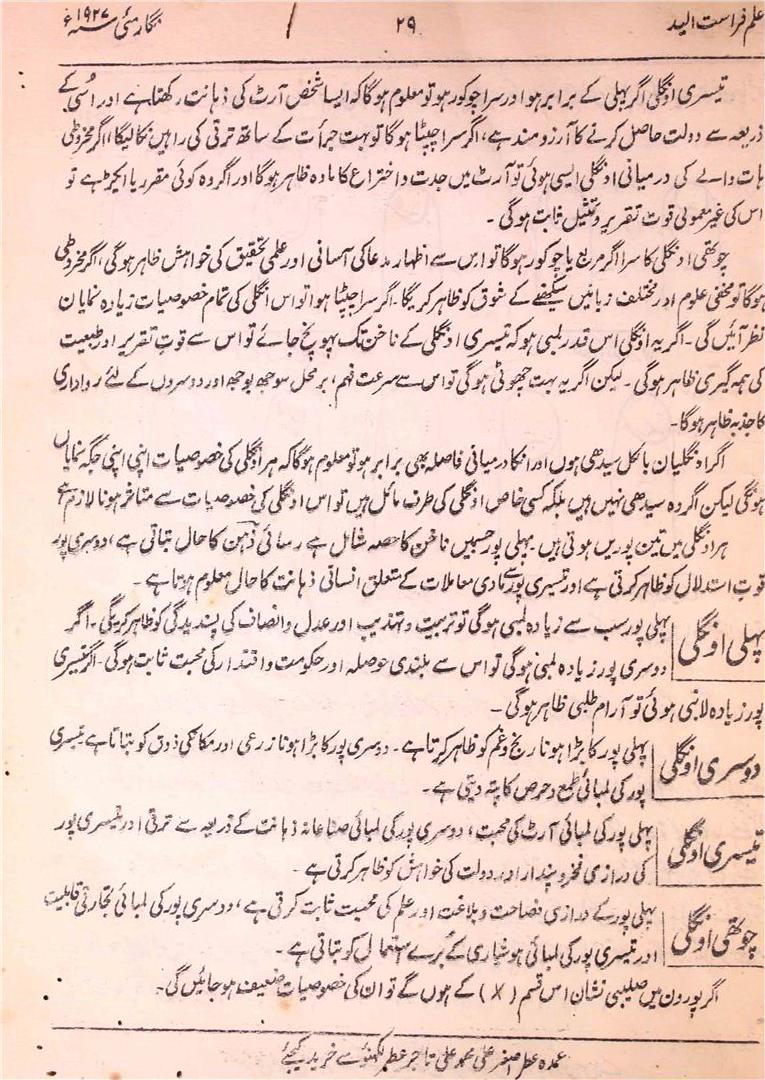 علم فراست الید
۲۹
نگار مئی سنہ ۱۹۲۷ء
تیسری اونگلی اگر پہلی کے برابر ہو اور سرا چوکور ہو تو معلوم ہوگا کہ ایسا شخص آرٹ کی ذہانت رکھتا ہے اور اُسی کے
ذریعہ سے دولت حاصل کرنے کا آرزو مند ہے، اگر سرا چپٹا ہوگا تو بہت جرأت کے ساتھ ترقی کی راہیں نکالیگا، اگر مخروطی
ہات والے کی درمیانی اونگلی ایسی ہوئی تو آرٹ میں جدت و اختراع کا مادہ ظاہر ہوگا اور اگر وہ کوئی مقرر یا ایکٹر ہے تو
اس کی غیر معمولی قوت تقریر و تمثیل ثابت ہوگی ۔
چوتھی اونگلی کا سرا اگر مربع یا چوکور ہوگا تو اس سے اظہار مدعا کی آسانی اور علمی تحقیق کی خواہش ظاہر ہوگی، اگر مخروطی
ہوگا تو مخفی علوم اور مختلف زبانیں سیکھنے کے شوق کو ظاہر کریگا۔ اگر سرا چپٹا ہوا تو اس انگلی کی تمام خصوصیات زیادہ نمایان
نظر آئیں گی ۔ اگر یہ اونگلی اس قدر لمبی ہو کہ تیسری اونگلی کے ناخن تک پہونچ جائے تو اس سے قوتِ تقریر اور طبیعت
کی ہمہ گیری ظاہر ہوگی ۔ لیکن اگر یہ بہت چھوٹی ہوگی تو اس سے سرعت فہم، بر محل سوجھ بوجھ اور دوسروں کے لئے رواداری
کا جذبہ ظاہر ہوگا۔
اگر اونگلیان بالکل سیدھی ہوں اور انکا درمیانی فاصلہ بھی برابر ہو تو معلوم ہوگا کہ ہر اونگلی کی خصوصیات اپنی اپنی جگہ نمایاں
ہونگی لیکن اگر وہ سیدھی نہیں ہیں بلکہ کسی خاص اونگلی کی طرف مائل ہیں تو اس اونگلی کی خصوصیات سے متاخر ہونا لازم ہے
ہر اونگلی میں تین پوریں ہوتی ہیں۔ پہلی پور جسمیں ناخن کا حصہ شامل ہے رسائی ذہن کا حال بتاتی ہے، دوسری پور
قوتِ استدلال کو ظاہر کرتی ہے اور تیسری پور سے مادی معاملات کے متعلق انسانی ذہانت کا حال معلوم ہوتا ہے ۔
پہلی اونگلی
پہلی پور سب سے زیادہ لمبی ہوگی تو تربیت و تہذیب اور عدل و انصاف کی پسندیدگی کو ظاہر کریگی۔ اگر
دوسری پور زیادہ لمبی ہوگی تو اس سے بلندی حوصلہ اور حکومت و اقتدار کی محبت ثابت ہوگی۔ اگر تیسری
پور زیادہ لانبی ہوئی تو آرام طلبی ظاہر ہوگی ۔
دوسری اونگلی
پہلی پور کا بڑا ہونا رنج و غم کو ظاہر کرتا ہے ۔ دوسری پور کا بڑا ہونا زرعی اور مکانکی ذوق کو بتاتا ہے تیسری
پور کی لمبائی طمع و حرص کا پتہ دیتی ہے ۔
تیسری اونگلی
پہلی پور کی لمبائی آرٹ کی محبت، دوسری پور کی لمبائی صناعانہ ذہانت کے ذریعہ سے ترقی اور تیسری پور
کی درازی فخر و پندار اور دولت کی خواہش کو ظاہر کرتی ہے ۔
چوتھی اونگلی
پہلی پور کے درازی فصاحت و بلاغت اور علم کی محبت ثابت کرتی ہے، دوسری پور کی لمبائی تجارتی قابلیت
اور تیسری پور کی لمبائی ہوشیاری کے بُرے استعمال کو بتاتی ہے ۔
اگر پورون میں صلیبی نشان اس قسم (X) کے ہوں گے تو ان کی خصوصیات ضعیف ہو جائیں گی۔
عمدہ عطر اصغر علی محمد علی تاجر عطر لکھنؤ سے خرید کیجئے